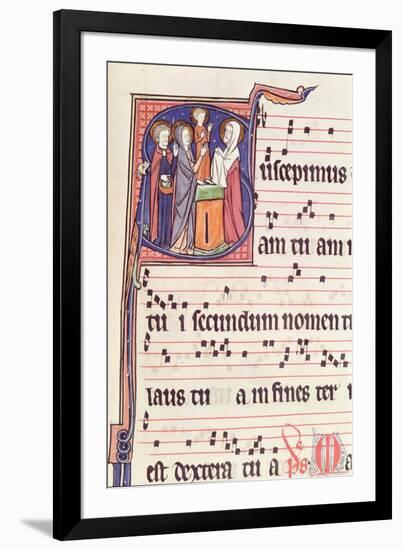 uscepimus
am tu am i
tu i secundum nomen tu
laus tu a in fines ter r
est dextera tu a ps. Ma